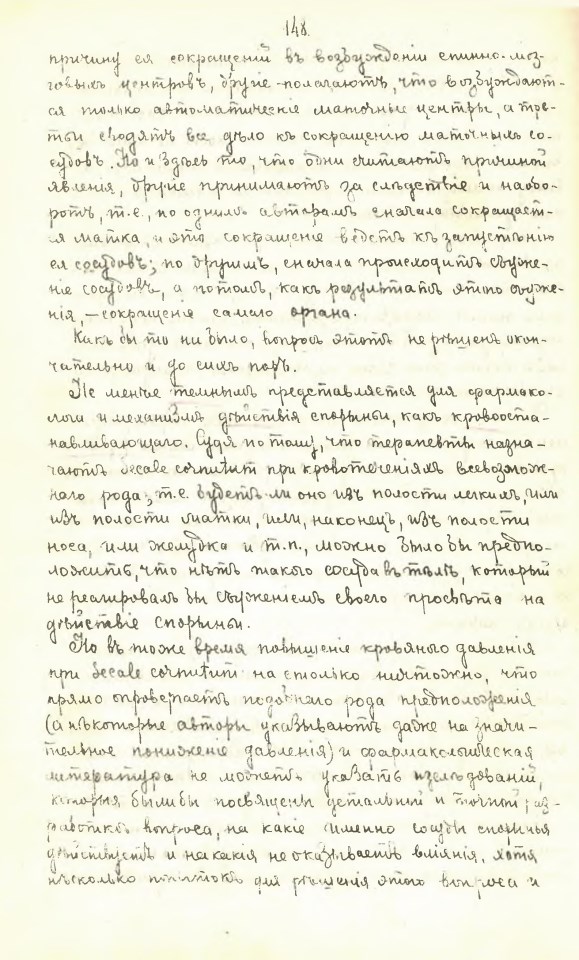 148.
причину ея сокращенiй въ возбужденiи спинно-моз-
говыхъ центровъ, другiе полагаютъ, что возбуждают-
ся только автоматическiе маточные центры, а тре-
тьи сводятъ все дѣло къ сокращенiю маточныхъ со-
судовъ. Но и здѣсь то, что одни считаютъ причиной
явленiя, другiе принимаютъ за слѣдствiе и наобо-
ротъ, т.е., по однимъ авторамъ сначала сокращает-
ся матка, и это сокращенiе ведетъ къ запустѣнiю
ея сосудовъ; по другимъ, сначала происходитъ съуже-
нiе сосудовъ, а потомъ, какъ результатъ этого съуже-
нiя, — сокращенiе самаго органа.
Какъ бы то ни было, вопросъ этотъ не рѣшенъ окон-
чательно и до сихъ поръ.
Не менѣе темнымъ представляется для фармако-
лога и механизмъ дѣйствiя спорыньи, какъ кровооста-
навливающаго. Судя по тому, что терапевты назна-
чаютъ Secale cornutum при кровотеченiяхъ всевозмож-
наго рода, т.е. будетъ ли оно изъ полости легкихъ, или
изъ полости матки, или, наконецъ, изъ полости
носа, или желудка и т.п., можно было бы предпо-
ложить, что нѣтъ такого сосуда въ тѣлѣ, который
не реагировалъ бы съуженiемъ своего просвѣта на
дѣйствiе спорыньи.
Но въ тоже время повышенiе кровяного давленiя
при Secale cornutum на столько ничтожно, что
прямо опровергаетъ подобнаго рода предположенiя
(а нѣкоторые авторы указываютъ даже на значи-
тельное пониженiе давленiя) и фармакологическая
литература не можетъ указать изслѣдованiй,
которыя были бы посвящены детальной и точной раз-
работкѣ вопроса, на какiе именно сосуды спорынья
дѣйствуетъ и на какiя не оказываетъ влiянiя, хотя
нѣсколько попытокъ для рѣшенiя этого вопроса и